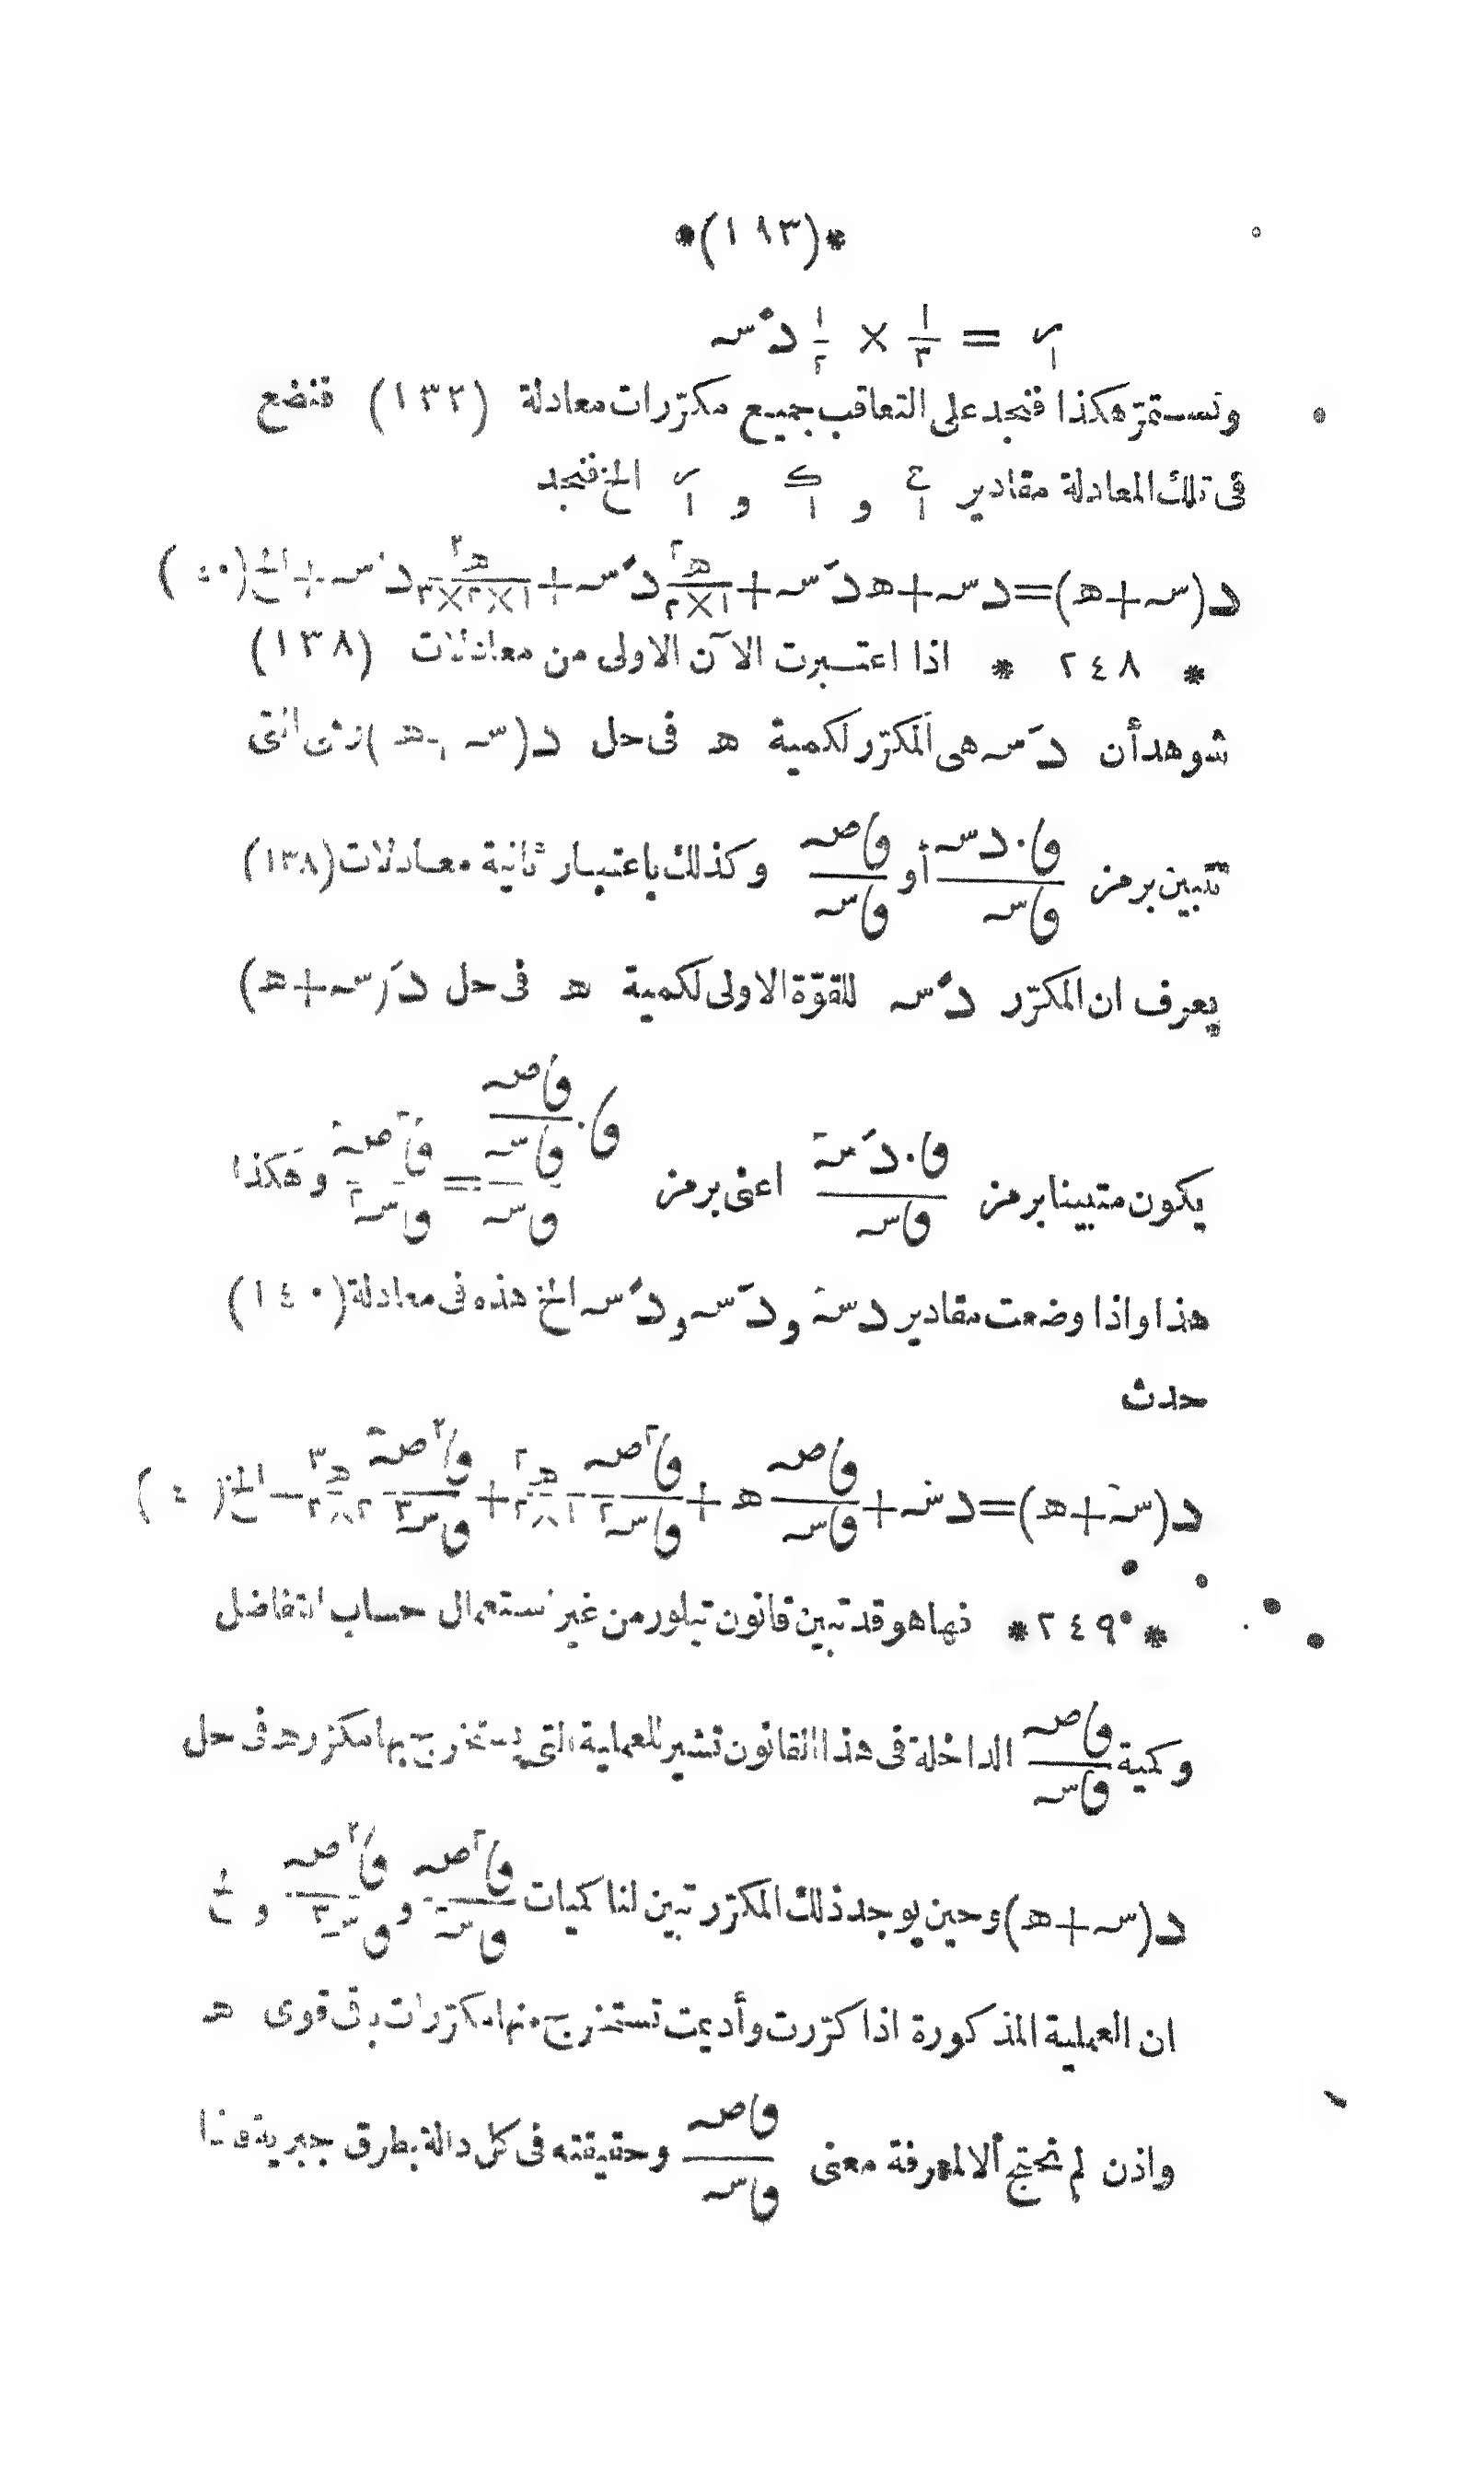 *(١٩٣)*
ر/١ = ١/٣ × ١/٢ دً سـ
ونستمرّ هكذا فنجد على التعاقب جميع مكرّرات معادلة (١٣٢) فنضع
فى تلك المعادلة مقادير ع/١ و ك/١ و ر/١ الخ فنجد
د(سـ+هـ)=دسـ+هـ دَسـ+هـ٢/١×٢ دًسـ+هـ٣/١×٢×٣ د سـ+الخ
* ٢٤٨ * اذا اعتبرت الآن الاولى من معادلات (١٣٨)
شوهد أن دَسـ هى المكرّر لكمية هـ فى حل د(سـ+هـ) التى
تتبين برمز ق.دسـ/قسـ أو قصـ/قسـ وكذلك باعتبار ثانية معادلات (١٣٨)
يعرف ان المكرّر دًسـ للقوّة الاولى لكمية هـ فى حل دَ(سـ+هـ)
يكون متبينا برمز ق.دَسـ/قسـ اعنى برمز ق.قصـ/قسـ/قسـ=ق٢صـ/قسـ٢ وهكذا
هذا واذا وضعت مقادير دسـ و دَسـ و دًسـ الخ هذه فى معادلة (١٤٠)
حدث
د(سـ+هـ)=دسـ+قصـ/قسـ هـ+ق٢صـ/قسـ٢ هـ٢/١×٢+ق٣صـ/قسـ٣ هـ٣/٢×٣+الخ
*٢٤٩* فها هو قد تبين قانون تيلور من غير استعمال حساب التفاضل
وكمية قصـ/قسـ الداخلة فى هذا القانون تشير للعملية التى يستخرج بها مكرّر هـ فى حل
د(سـ+هـ) وحين يوجد ذلك المكرّر تبين لنا كميات ق٢صـ/قسـ٢ و ق٣صـ/قسـ٣ و الخ
ان العملية المذكورة اذا كرّرت وأديمت تستخرج منها مكرّرات باقى قوى هـ
واذن لم نحتج ألا لمعرفة معنى قصـ/قسـ وحقيقته فى كل دالة بطرق جبرية